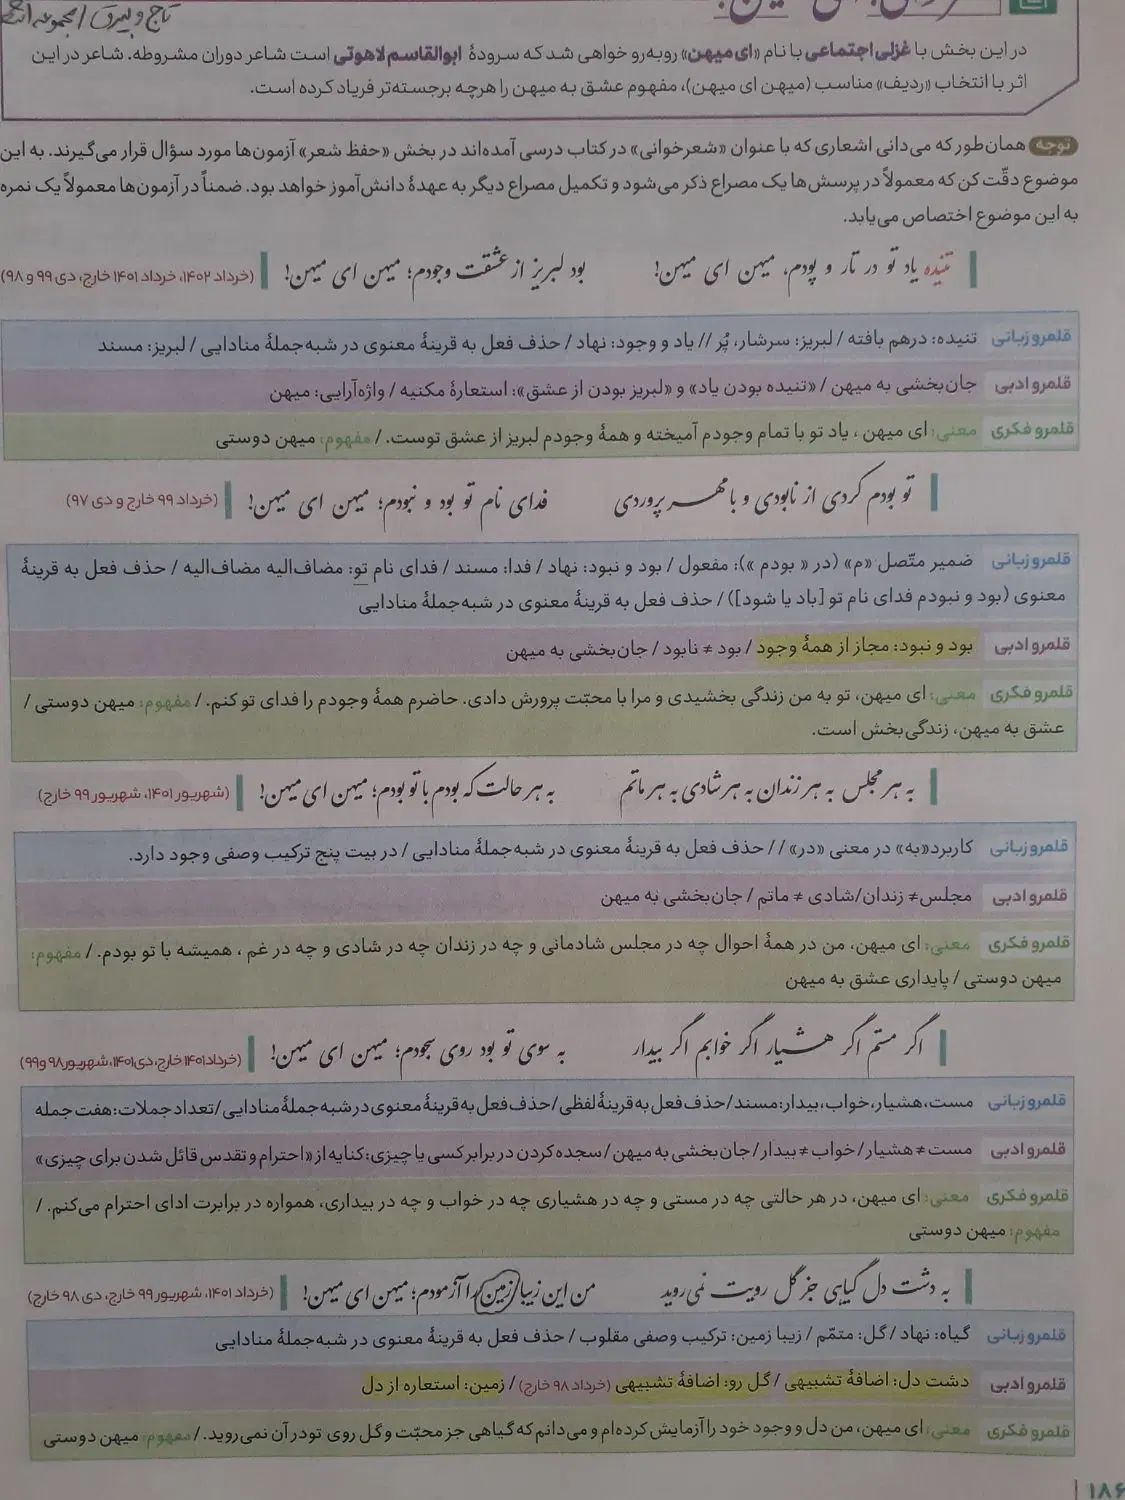 تاج و بیرق / مجموعه
در این بخش با غزلی اجتماعی با نام «ای میهن» روبه‌رو خواهی شد که سرودهٔ ابوالقاسم لاهوتی است شاعر دوران مشروطه. شاعر در این
اثر با انتخاب «ردیف» مناسب (میهن ای میهن)، مفهوم عشق به میهن را هرچه برجسته‌تر فریاد کرده است.
توجه همان‌طور که می‌دانی اشعاری که با عنوان «شعرخوانی» در کتاب درسی آمده‌اند در بخش «حفظ شعر» آزمون‌ها مورد سؤال قرار می‌گیرند. به این
موضوع دقّت کن که معمولاً در پرسش‌ها یک مصراع ذکر می‌شود و تکمیل مصراع دیگر به عهدهٔ دانش‌آموز خواهد بود. ضمناً در آزمون‌ها معمولاً یک نمره
به این موضوع اختصاص می‌یابد.
تنیده یاد تو در تار و پودم، میهن ای میهن! بود لبریز از عشقت وجودم؛ میهن ای میهن! (خرداد ۱۴۰۲، خرداد ۱۴۰۱ خارج، دی ۹۹ و ۹۸)
قلمرو زبانی تنیده: درهم بافته / لبریز: سرشار، پُر // یاد و وجود: نهاد / حذف فعل به قرینهٔ معنوی در شبه‌جملهٔ منادایی / لبریز: مسند
قلمرو ادبی جان‌بخشی به میهن / «تنیده بودن یاد» و «لبریز بودن از عشق»: استعارهٔ مکنیه / واژه‌آرایی: میهن
قلمرو فکری معنی: ای میهن، یاد تو با تمام وجودم آمیخته و همهٔ وجودم لبریز از عشق توست. / مفهوم: میهن دوستی
تو بودم کردی از نابودی و با مهر پروردی فدای نام تو بود و نبودم؛ میهن ای میهن! (خرداد ۹۹ خارج و دی ۹۷)
قلمرو زبانی ضمیر متّصل «م» (در « بودم »): مفعول / بود و نبود: نهاد / فدا: مسند / فدای نام تو: مضاف‌الیه مضاف‌الیه / حذف فعل به قرینهٔ
معنوی (بود و نبودم فدای نام تو [باد یا شود]) / حذف فعل به قرینهٔ معنوی در شبه‌جملهٔ منادایی
قلمرو ادبی بود و نبود: مجاز از همهٔ وجود / بود ≠ نابود / جان‌بخشی به میهن
قلمرو فکری معنی: ای میهن، تو به من زندگی بخشیدی و مرا با محبّت پرورش دادی. حاضرم همهٔ وجودم را فدای تو کنم. / مفهوم: میهن دوستی /
عشق به میهن، زندگی‌بخش است.
به هر مجلس به هر زندان به هر شادی به هر ماتم به هر حالت که بودم با تو بودم؛ میهن ای میهن! (شهریور ۱۴۰۱، شهریور ۹۹ خارج)
قلمرو زبانی کاربرد «به» در معنی «در» // حذف فعل به قرینهٔ معنوی در شبه‌جملهٔ منادایی / در بیت پنج ترکیب وصفی وجود دارد.
قلمرو ادبی مجلس ≠ زندان/شادی ≠ ماتم / جان‌بخشی به میهن
قلمرو فکری معنی: ای میهن، من در همهٔ احوال چه در مجلس شادمانی و چه در زندان چه در شادی و چه در غم ، همیشه با تو بودم. / مفهوم:
میهن دوستی / پایداری عشق به میهن
اگر مستم اگر هشیار اگر خوابم اگر بیدار به سوی تو بود روی سجودم؛ میهن ای میهن! (خرداد ۱۴۰۱ خارج، دی ۱۴۰۱، شهریور ۹۸ و ۹۹)
قلمرو زبانی مست، هشیار، خواب، بیدار: مسند / حذف فعل به قرینهٔ لفظی / حذف فعل به قرینهٔ معنوی در شبه‌جملهٔ منادایی / تعداد جملات: هفت جمله
قلمرو ادبی مست ≠ هشیار / خواب ≠ بیدار / جان‌بخشی به میهن / سجده کردن در برابر کسی یا چیزی: کنایه از «احترام و تقدس قائل شدن برای چیزی»
قلمرو فکری معنی: ای میهن، در هر حالتی چه در مستی و چه در هشیاری چه در خواب و چه در بیداری، همواره در برابرت ادای احترام می‌کنم. /
مفهوم: میهن دوستی
به دشت دل گیاهی جز گل رویت نمی‌روید من این زیبا زمین را آزمودم؛ میهن ای میهن! (خرداد ۱۴۰۱، شهریور ۹۹ خارج، دی ۹۸ خارج)
قلمرو زبانی گیاه: نهاد / گل: متمّم / زیبا زمین: ترکیب وصفی مقلوب / حذف فعل به قرینهٔ معنوی در شبه‌جملهٔ منادایی
قلمرو ادبی دشت دل: اضافهٔ تشبیهی / گل رو: اضافهٔ تشبیهی (خرداد ۹۸ خارج) / زمین: استعاره از دل
قلمرو فکری معنی: ای میهن، من دل و وجود خود را آزمایش کرده‌ام و می‌دانم که گیاهی جز محبّت و گل روی تو در آن نمی‌روید. / مفهوم: میهن دوستی
۱۸۶